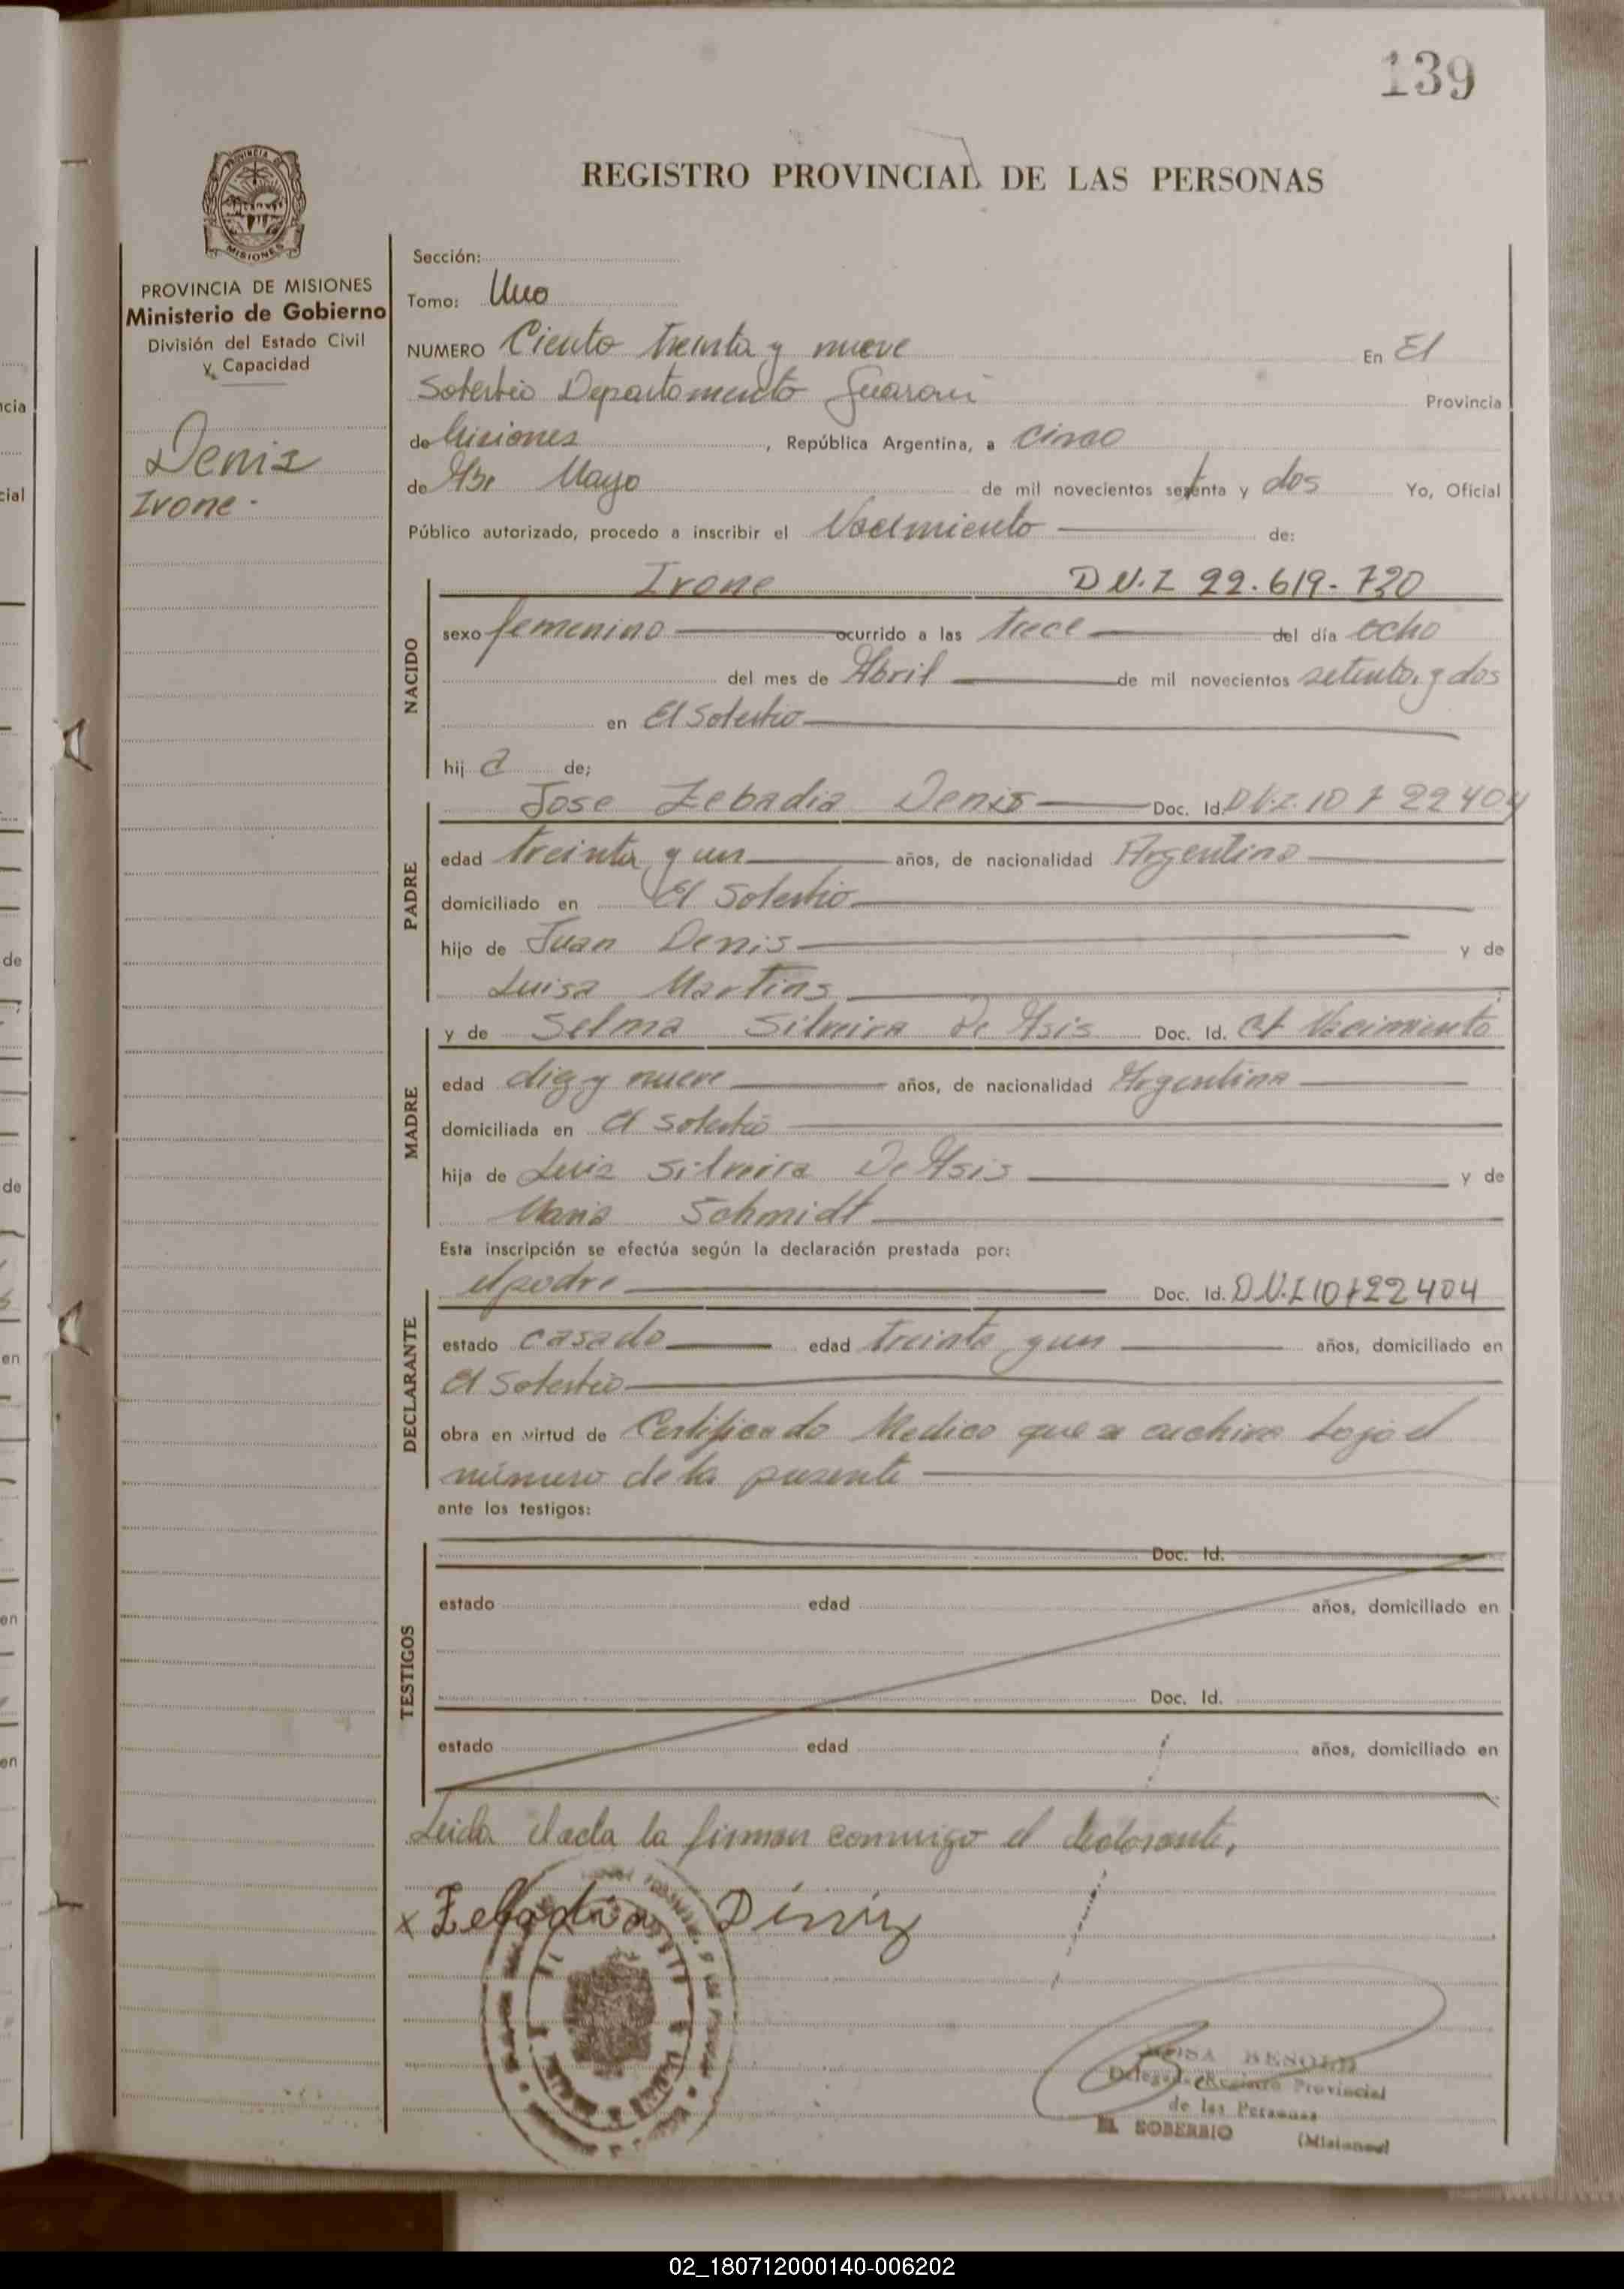 139
REGISTRO PROVINCIAL DE LAS PERSONAS
PROVINCIA DE
MISIONES
PROVINCIA DE MISIONES
Ministerio de Gobierno
División del Estado Civil
y Capacidad
Denis
Ivone.
Sección:
Tomo: Uno
NUMERO Ciento treinta y nueve En El
Soberbio Departamento Guarani Provincia
de Misiones, República Argentina, a cinco
de Mayo de mil novecientos setenta y dos Yo, Oficial
Público autorizado, procedo a inscribir el Nacimiento de:
NACIDO
Ivone D.N.I 22.619.720
sexo femenino ocurrido a las trece del día ocho
del mes de Abril de mil novecientos setenta y dos
en El Soberbio
hij a de;
PADRE
Jose Zebadia Denis Doc. Id. D.N.I. 10722404
edad treinta y un años, de nacionalidad Argentina
domiciliado en El Soberbio
hijo de Juan Denis y de
Luisa Martins
MADRE
y de Selma Silveira De Asis Doc. Id. Ct Nacimiento
edad diez y nueve años, de nacionalidad Argentina
domiciliada en El Soberbio
hija de Luis Silveira De Asis y de
Maria Schmidt
Esta inscripción se efectúa según la declaración prestada por:
DECLARANTE
el padre Doc. Id. D.N.I 10722404
estado casado edad treinta y un años, domiciliado en
El Soberbio
obra en virtud de Certificado Medico que se archiva bajo el
número de la presente
ante los testigos:
TESTIGOS
Doc. Id.
estado edad años, domiciliado en
Doc. Id.
estado edad años, domiciliado en
Leida el acta la firman conmigo el declarante,
x Zebadia Diniz
Delegada Registro Provincial
de las Personas
EL SOBERBIO (Misiones)
02_180712000140-006202